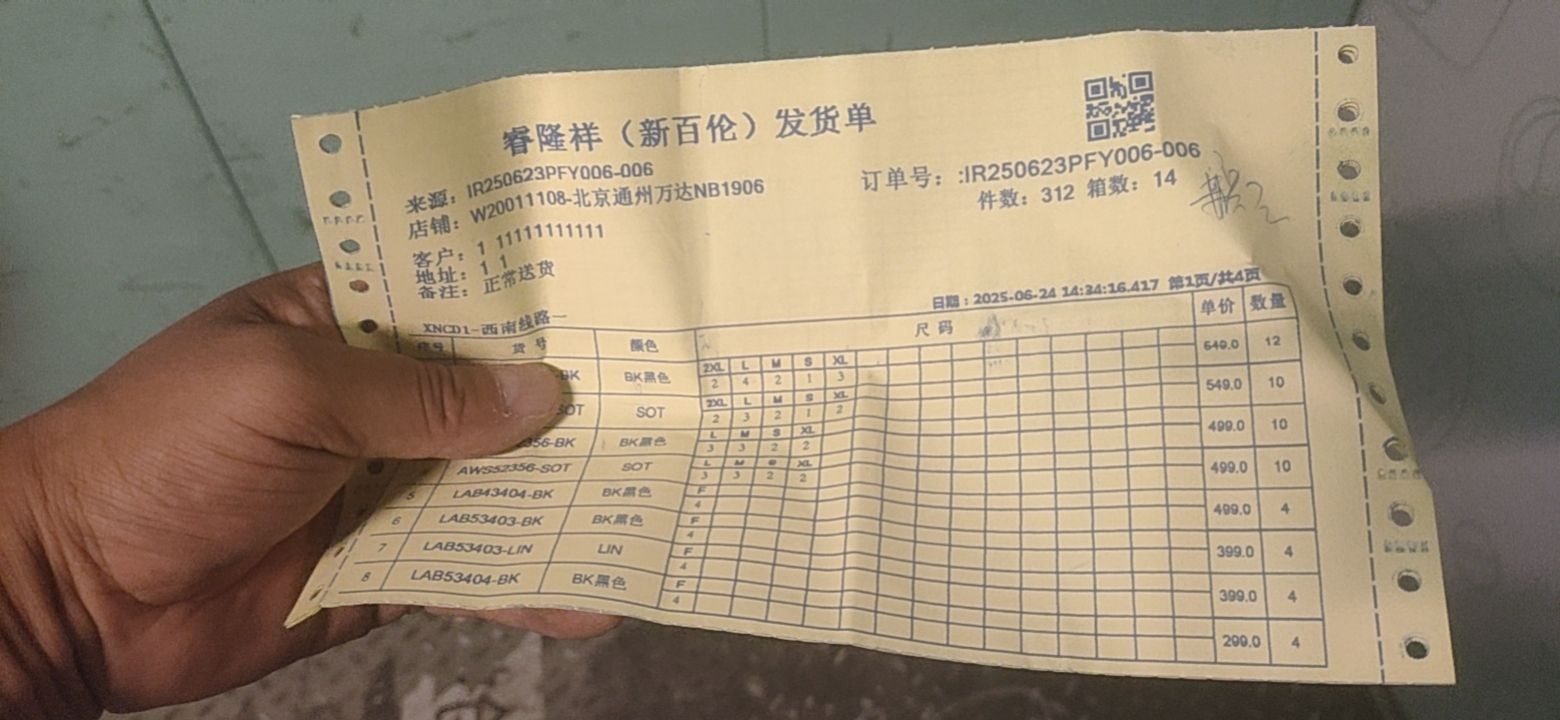 睿隆祥（新百伦）发货单
来源：IR250623PFY006-006
订单号：:IR250623PFY006-006
店铺：W20011108-北京通州万达NB1906
件数：312 箱数：14
客户：1 11111111111
地址：1 1
备注：正常送货
日期：2025-06-24 14:34:16.417 第1页/共4页
XNCD1-西南线路一
序号 货号 颜色 尺码 单价 数量
2XL L M S XL
BK BK黑色 2 4 2 1 3 649.0 12
2XL L M S XL
SOT SOT 2 3 2 1 2 549.0 10
L M S XL
356-BK BK黑色 3 3 2 2 499.0 10
L M XL
AWS52356-SOT SOT 3 3 2 2 499.0 10
F
5 LAB43404-BK BK黑色 4 499.0 4
F
6 LAB53403-BK BK黑色 4 399.0 4
F
7 LAB53403-LIN LIN 4 399.0 4
F
8 LAB53404-BK BK黑色 4 299.0 4